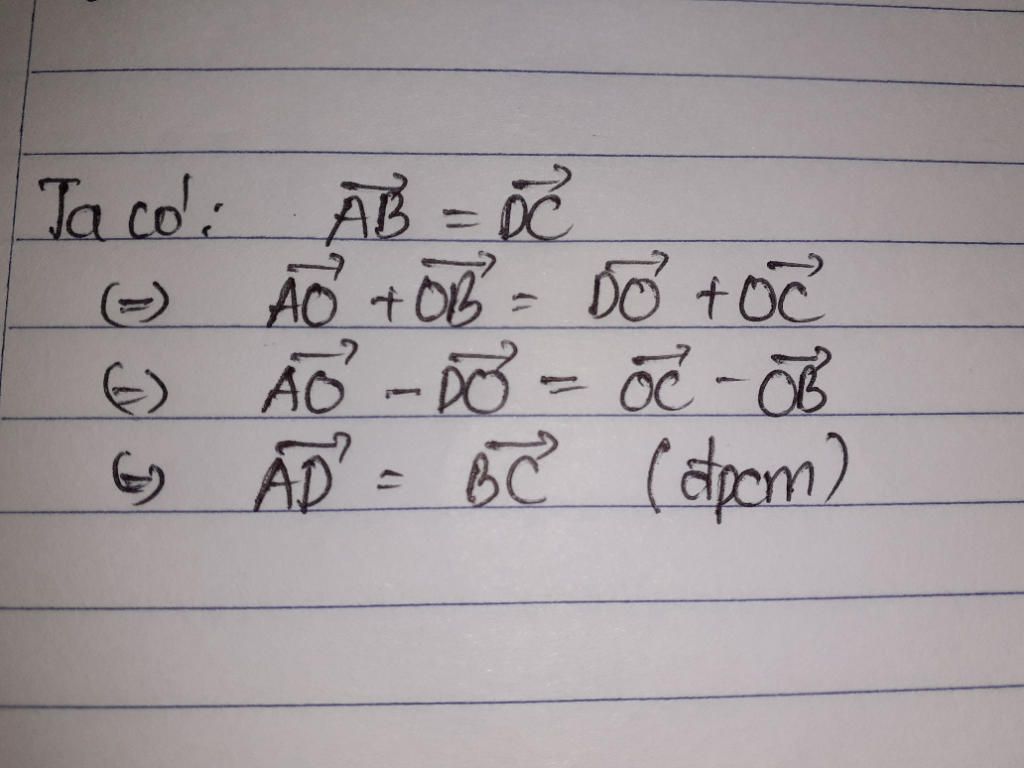 Ta có: $\overrightarrow{AB} = \overrightarrow{DC}$
(=) $\overrightarrow{AO} + \overrightarrow{OB} = \overrightarrow{DO} + \overrightarrow{OC}$
(=) $\overrightarrow{AO} - \overrightarrow{DO} = \overrightarrow{OC} - \overrightarrow{OB}$
(=) $\overrightarrow{AD} = \overrightarrow{BC}$ (đpcm)